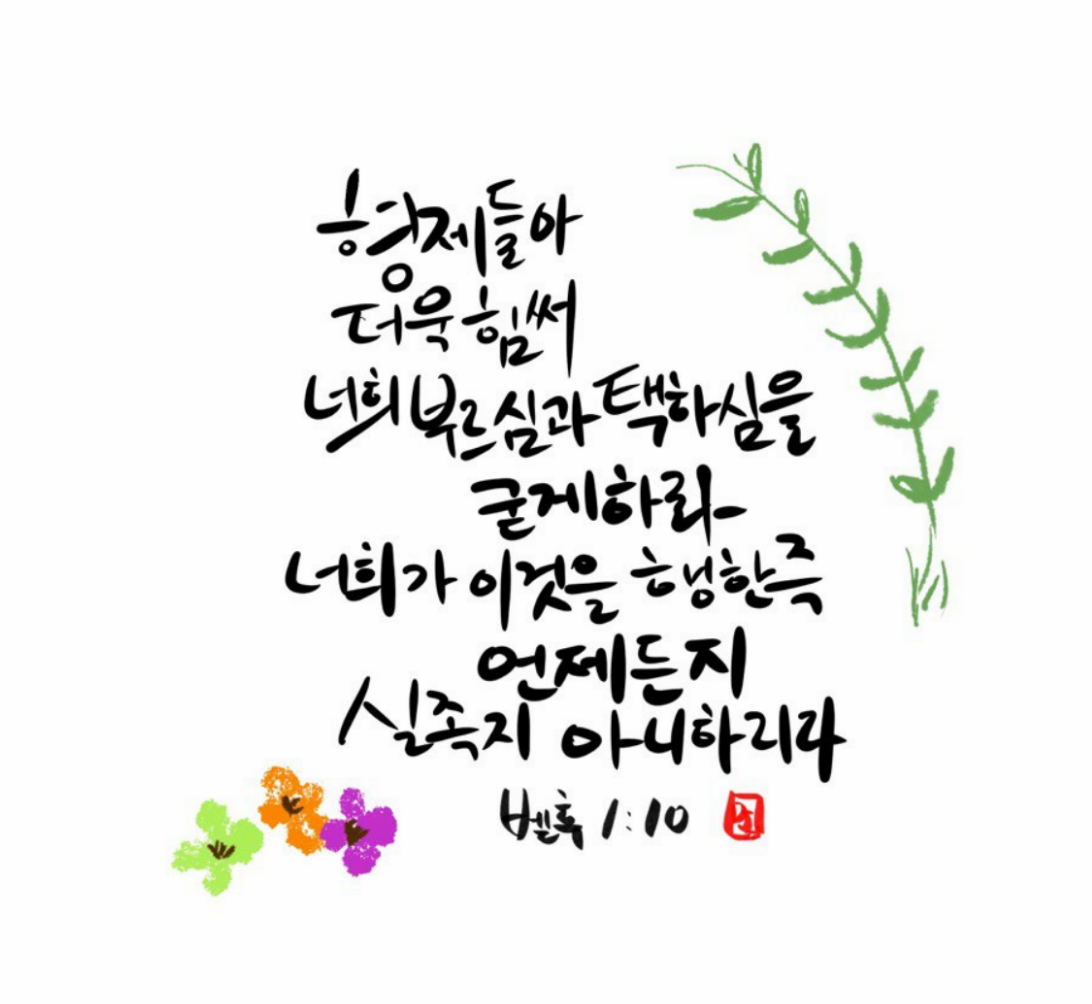 형제들아
더욱 힘써
너희 부르심과 택하심을
굳게하라
너희가 이것을 행한즉
언제든지
실족지 아니하리라
벧후 1:10